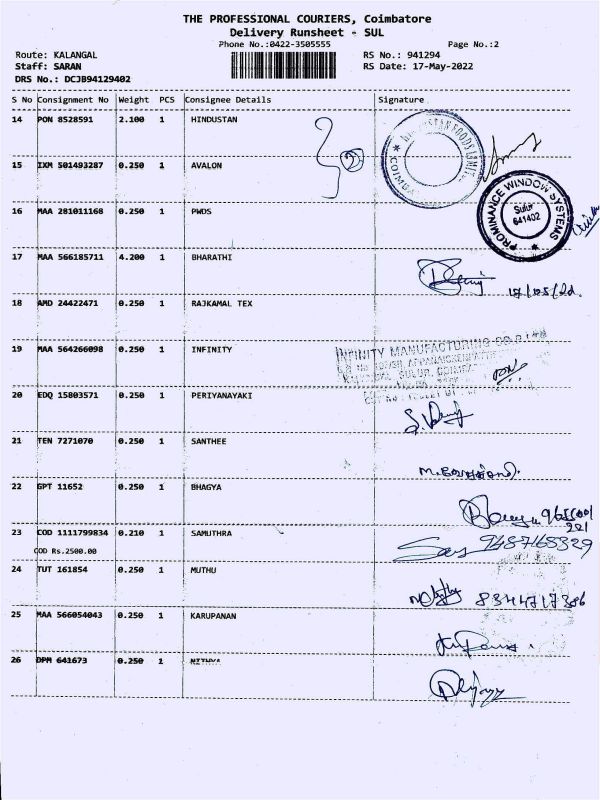 THE PROFESSIONAL COURIERS, Coimbatore
Delivery Runsheet - SUL
Phone No.:0422-3505555 Page No.:2
Route: KALANGAL RS No.: 941294
Staff: SARAN RS Date: 17-May-2022
DRS No.: DCJB94129402
S No Consignment No Weight PCS Consignee Details Signature
14 PON 8528591 2.100 1 HINDUSTAN
2
15 IXM 501493287 0.250 1 AVALON
PROMINANCE WINDOW SYSTEMS
Sulur
641402
16 MAA 281011168 0.250 1 PWDS
17 MAA 566185711 4.200 1 BHARATHI
17/05/22
18 AMD 24422471 0.250 1 RAJKAMAL TEX
19 MAA 564266098 0.250 1 INFINITY
INFINITY MANUFACTURING
20 EDQ 15803571 0.250 1 PERIYANAYAKI
21 TEN 7271070 0.250 1 SANTHEE
22 GPT 11652 0.250 1 BHAGYA
23 COD 1111799834 0.210 1 SAMUTHRA
COD Rs.2500.00
24 TUT 161854 0.250 1 MUTHU
8344717386
25 MAA 566054043 0.250 1 KARUPANAN
26 DPM 641673 0.250 1 NITHYA